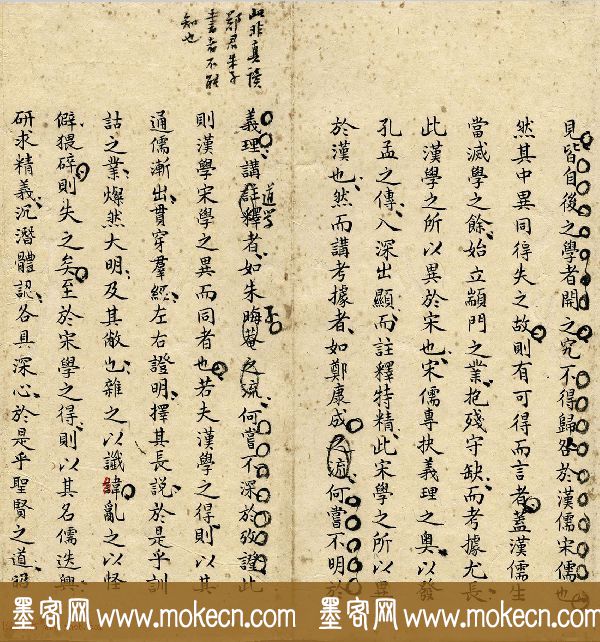 見皆自後之學者開之究不得歸咎於漢儒宋儒也
然其中異同得失之故則有可得而言者蓋漢儒生
當滅學之餘始立顓門之業抱殘守缺而考據尤長
此漢學之所以異於宋也宋儒專抉義理之奧以發
孔孟之傳入深出顯而註釋特精此宋學之所以異
於漢也然而講考據者如鄭康成之流何嘗不明於
義理講註釋者如朱晦菴之流何嘗不深於攷證此
道學
子
則漢學宋學之異而同者也若夫漢學之得則以其
通儒漸出貫穿羣經左右證明擇其長說於是乎訓
詁之業燦然大明及其敝也雜之以讖緯亂之以怪
僻猥碎則失之矣至於宋學之得則以其名儒迭興
研求精義沉潛體認各具深心於是乎聖賢之道昭
此非真讀
鄭君朱子
書者不能
知也
墨客网 www.mokecn.com 墨客网 www.mokecn.com